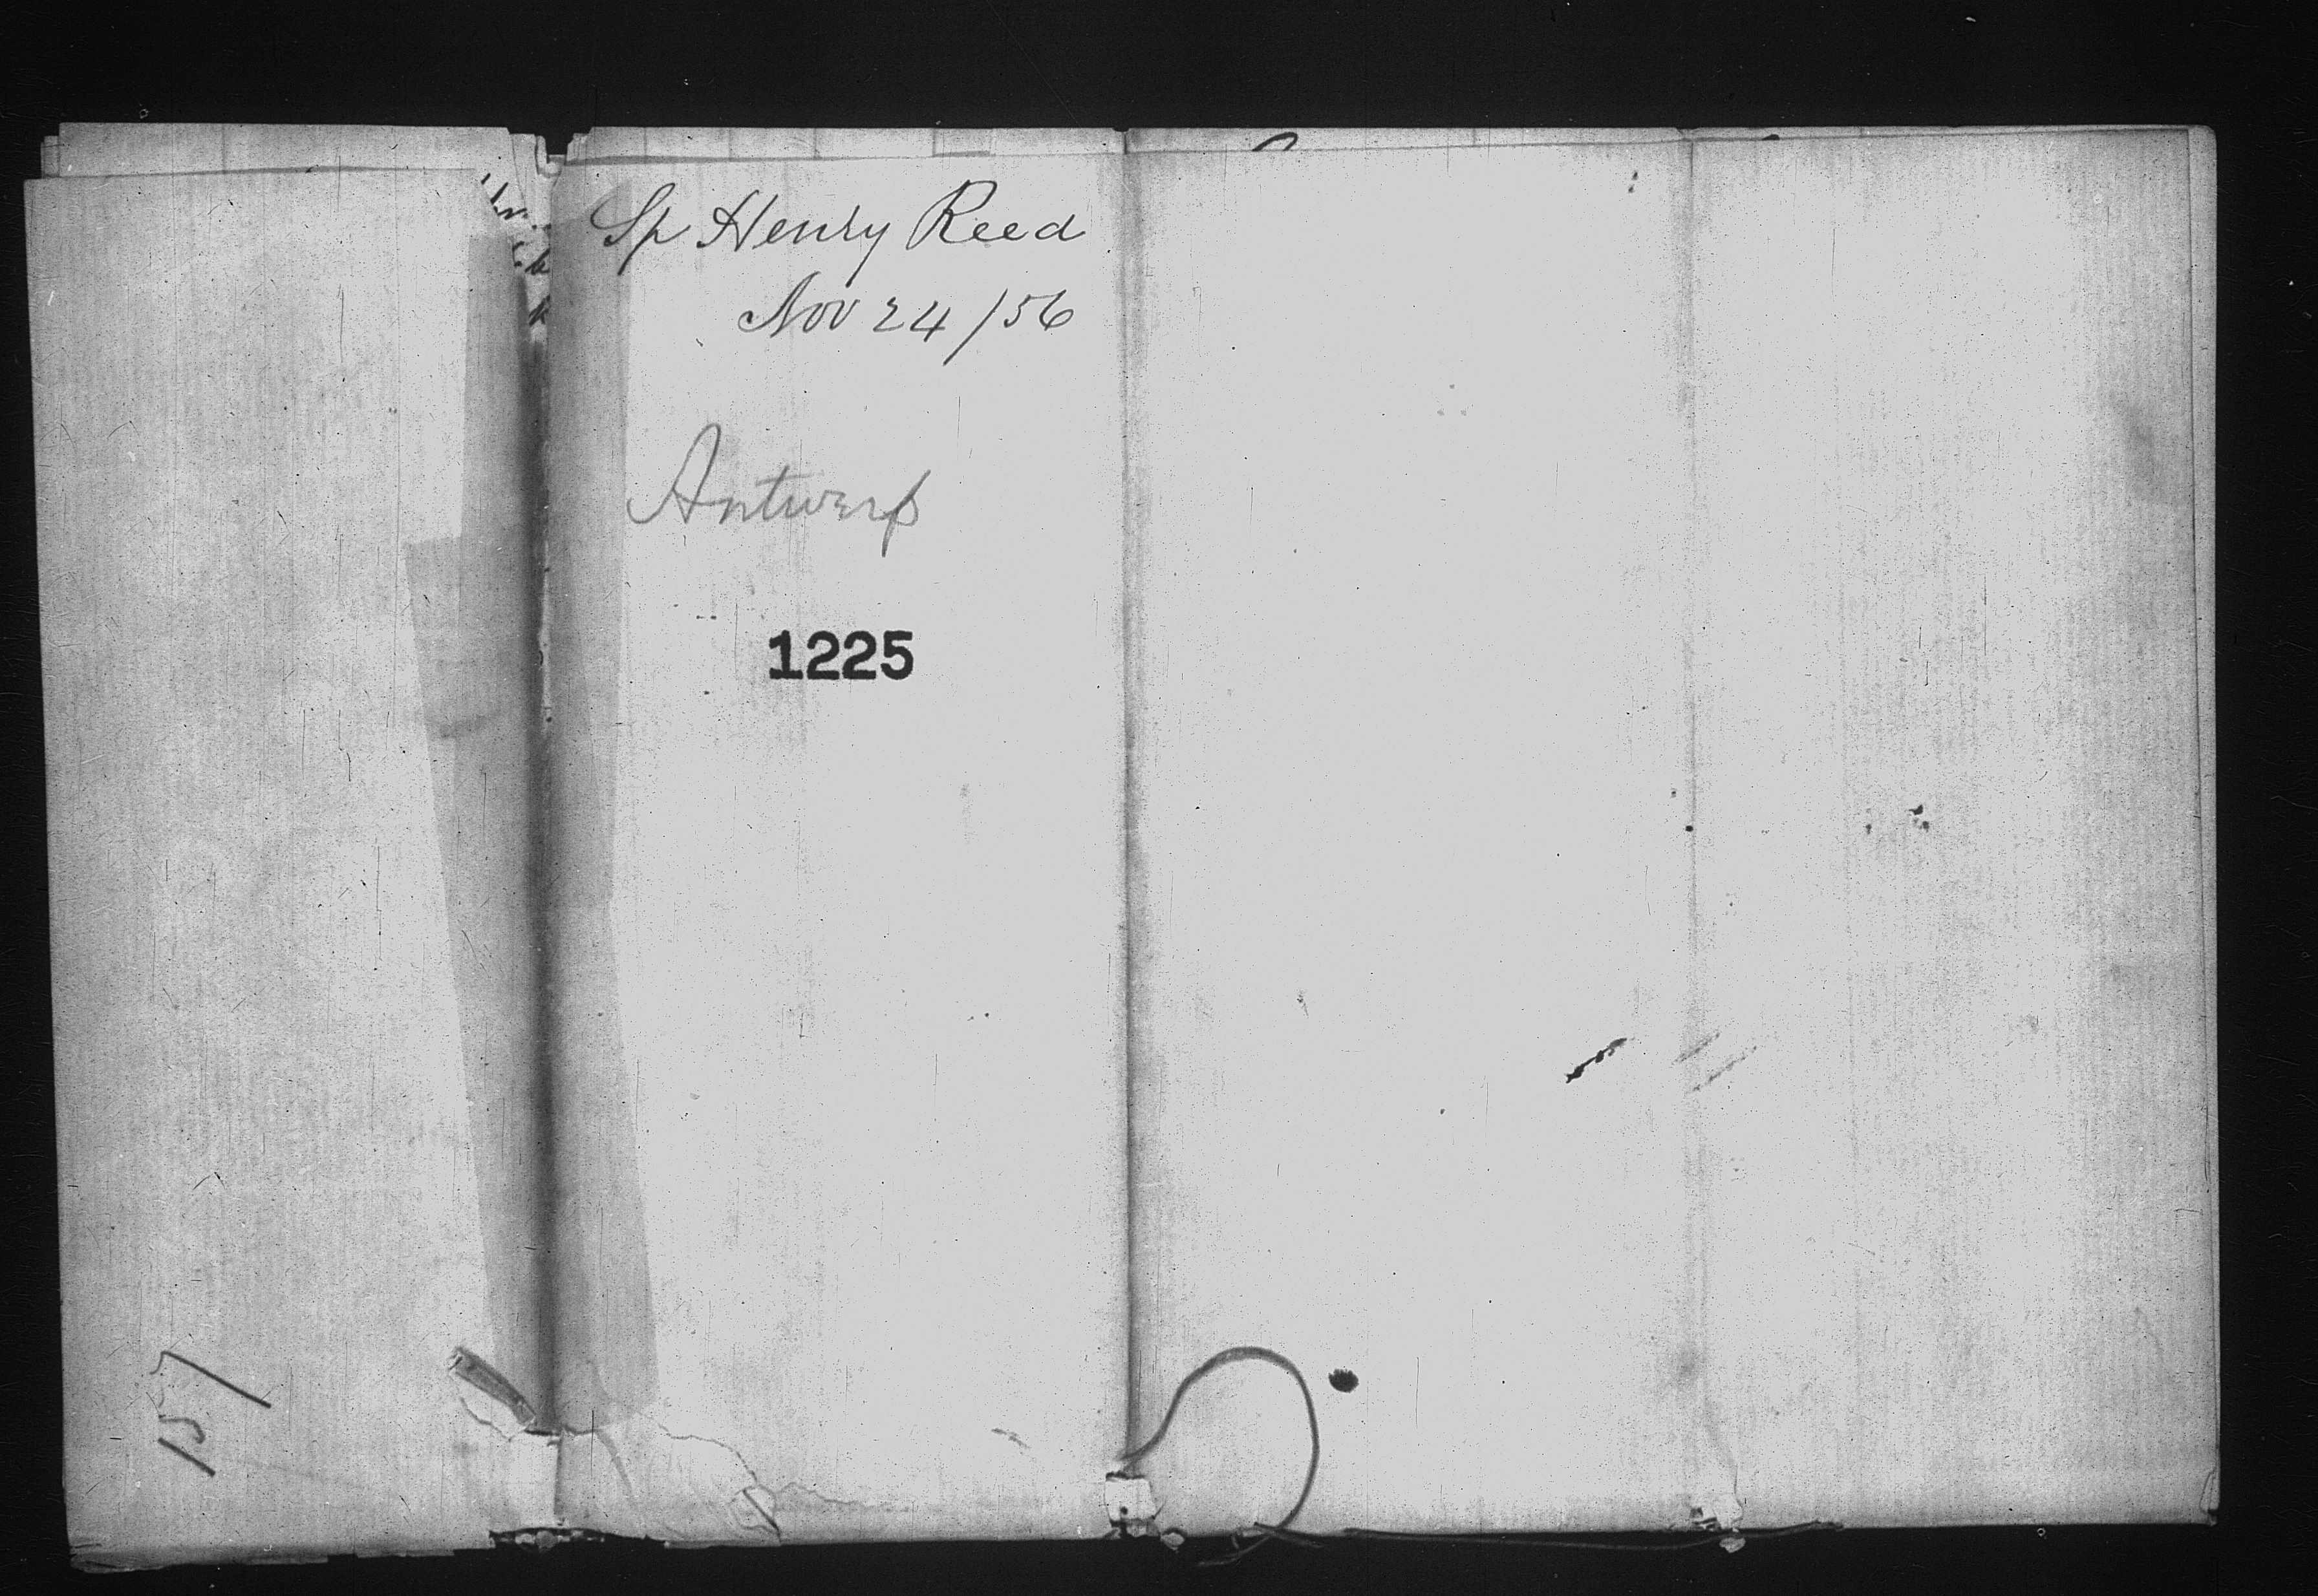 Sp Henry Reed
Nov 24/56
Antwerp
1225
157